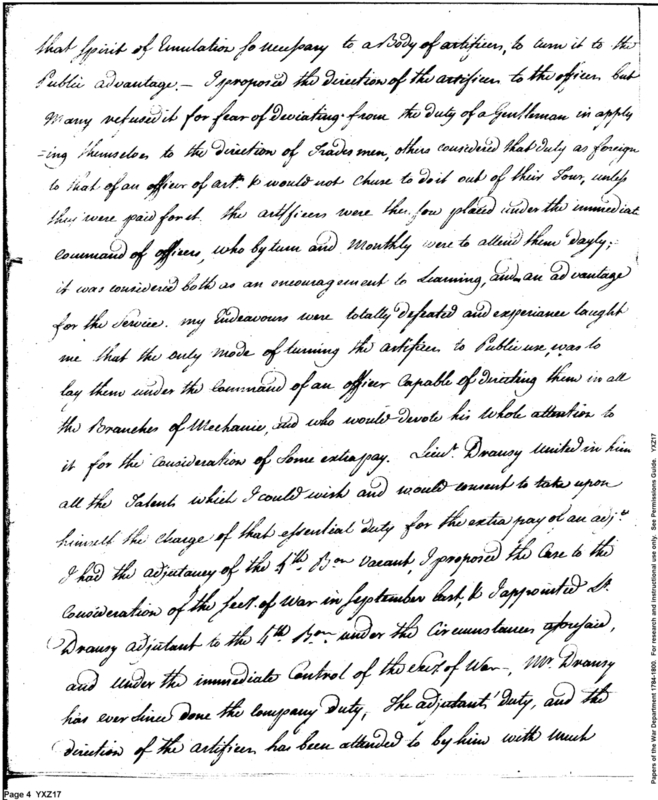 that Spirit of Emulation so necessary to a Body of artificers, to turn it to the
Public advantage. - I proposed the direction of the artificers to the officers but
Many refused it for fear of deviating from the duty of a Gentleman in apply
=ing themselves to the direction of Tradesmen, others considered that duty as foreign
to that of an officer of arty. & would not chuse to do it out of their Tour, unless
they were paid for it. the artificers were therefore placed under the immediate
Command of officers, who by turn and Monthly were to attend them dayly;
it was considered both as an encouragement to Learning, and an advantage
for the Service. my Endeavours were totally defeated and experiance taught
me that the only mode of turning the artificers to Public use, was to
lay them under the Command of an officer Capable of directing them in all
the Branches of Mechanic, and who would devote his whole attention to
it for the Consideration of Some extra pay. Lieut. Dransy united in him
all the Talents which I could wish and would consent to take upon
himself the Charge of that essential duty for the extra pay of an adjt.
I had the adjutancy of the 4th Bon Vacant, I proposed the Case to the
Consideration of the Secy. of War in September last, & I appointed Lt.
Dransy adjutant to the 4th Bon under the Circumstances aforesaid,
and under the immediate Control of the Secy. of War -, Mr. Dransy
has ever Since done the Company duty, The adjutants' duty, and the
direction of the artificers has been attended to by him with Much
Page 4 YXZ17
Papers of the War Department 1784-1800. For research and instructional use only. See Permissions Guide. YXZ17